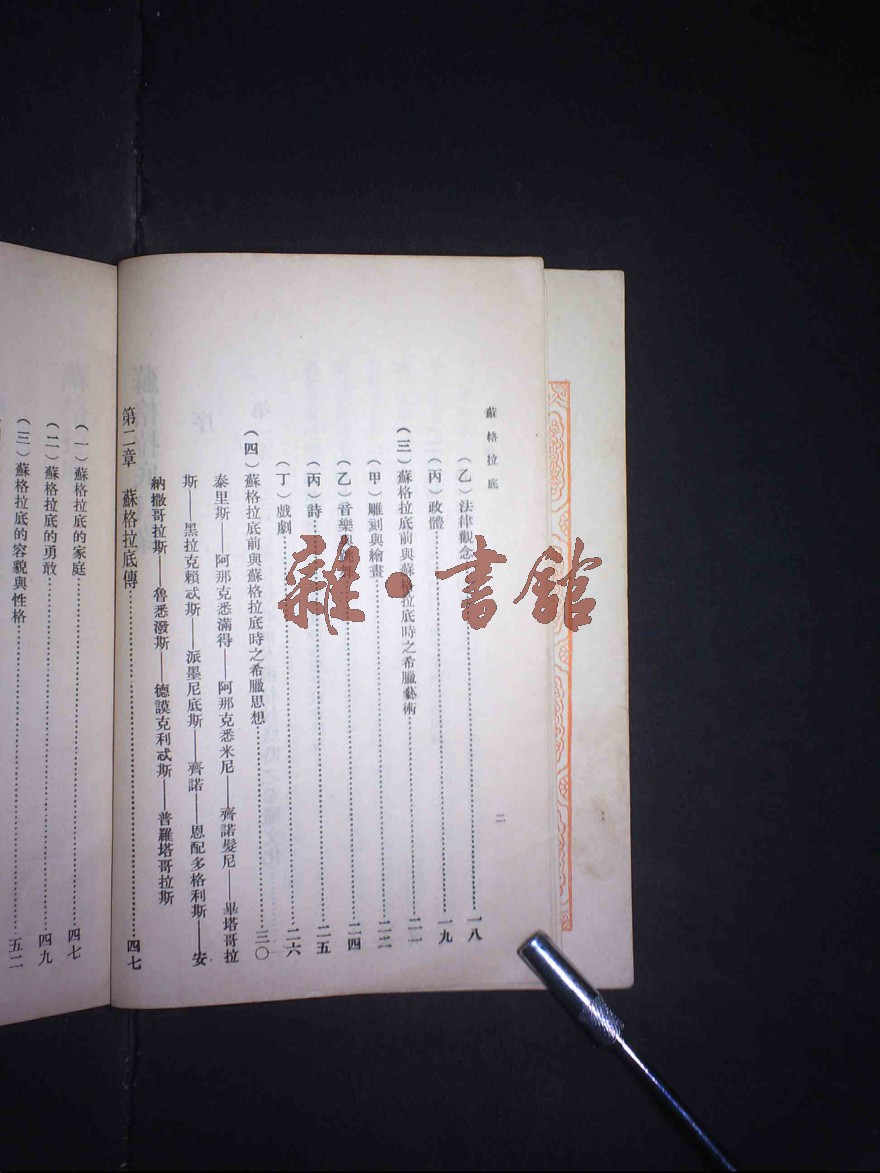 蘇格拉底
二
（乙）法律觀念……一八
（丙）政體……一九
（三）蘇格拉底前與蘇格拉底時之希臘藝術……二一
（甲）雕刻與繪畫……二二
（乙）音樂與……二四
（丙）詩……二五
（丁）戲劇……二六
（四）蘇格拉底前與蘇格拉底時之希臘思想……三〇
泰里斯——阿那克悉滿得——阿那克悉米尼——齊諾髮尼——畢塔哥拉
斯——黑拉克賴忒斯——派墨尼底斯——齊諾——恩配多格利斯——安
納撒哥拉斯——魯悉潑斯——德謨克利忒斯——普羅塔哥拉斯
第二章　蘇格拉底傳……四七
（一）蘇格拉底的家庭……四七
（二）蘇格拉底的勇敢……四九
（三）蘇格拉底的容貌與性格……五二
雜·書館